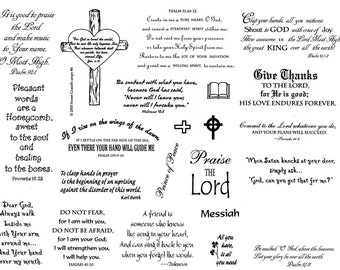 It is good to praise
the Lord
and make music
to Your name,
O Most High.
Psalm 92:1
Create in me a PURE HEART, O God,
and renew a STEADFAST SPIRIT within me.
Do not cast me from your presence
or take your Holy Spirit from me.
Restore to me the joy of your salvation
and grant me a willing spirit, to sustain me.
Psalm 51:10-12
Clap your hands, all you nations
Shout to GOD with cries of Joy.
How awesome is the Lord Most High
the great KING over all the earth!
Psalm 47:1-2
Be content with what you have,
because God has said,
"Never will I leave you;
never will I forsake you."
Hebrews 13:5
Give Thanks
TO THE LORD,
for He is good;
HIS LOVE ENDURES FOREVER.
Pleasant
words
are a
Honeycomb,
sweet
to the
soul
and
healing
to the
bones.
Proverbs 16:24
If I rise on the wings of the dawn,
IF I SETTLE ON THE FAR SIDE OF THE SEA,
EVEN THERE YOUR HAND WILL GUIDE ME
PSALM 139:9-10
Commit to the Lord whatever you do,
AND YOUR PLANS WILL SUCCEED.
Proverbs 16:3
To clasp hands in prayer
is the beginning of an uprising
against the disorder of this world.
Karl Barth
Prince of Peace
Praise
THE
Lord
When Satan knocks at your door,
simply say...
"God, can you get that for me?"
Dear God,
Always
walk
beside
me
with Your
arm
around
me...
and Your
hand
over my
mouth!
DO NOT FEAR,
for I am with you;
DO NOT BE AFRAID,
for I am your God;
I will strengthen you,
I will help you.
ISAIAH 41:10
A friend is
someone who knows
the song in your heart,
and can sing it back to you
when you forget the words.
Messiah
All you
have,
is all
you need
Be exalted, O God, above the heavens
Let your glory be over all the earth.
Psalm 57:11